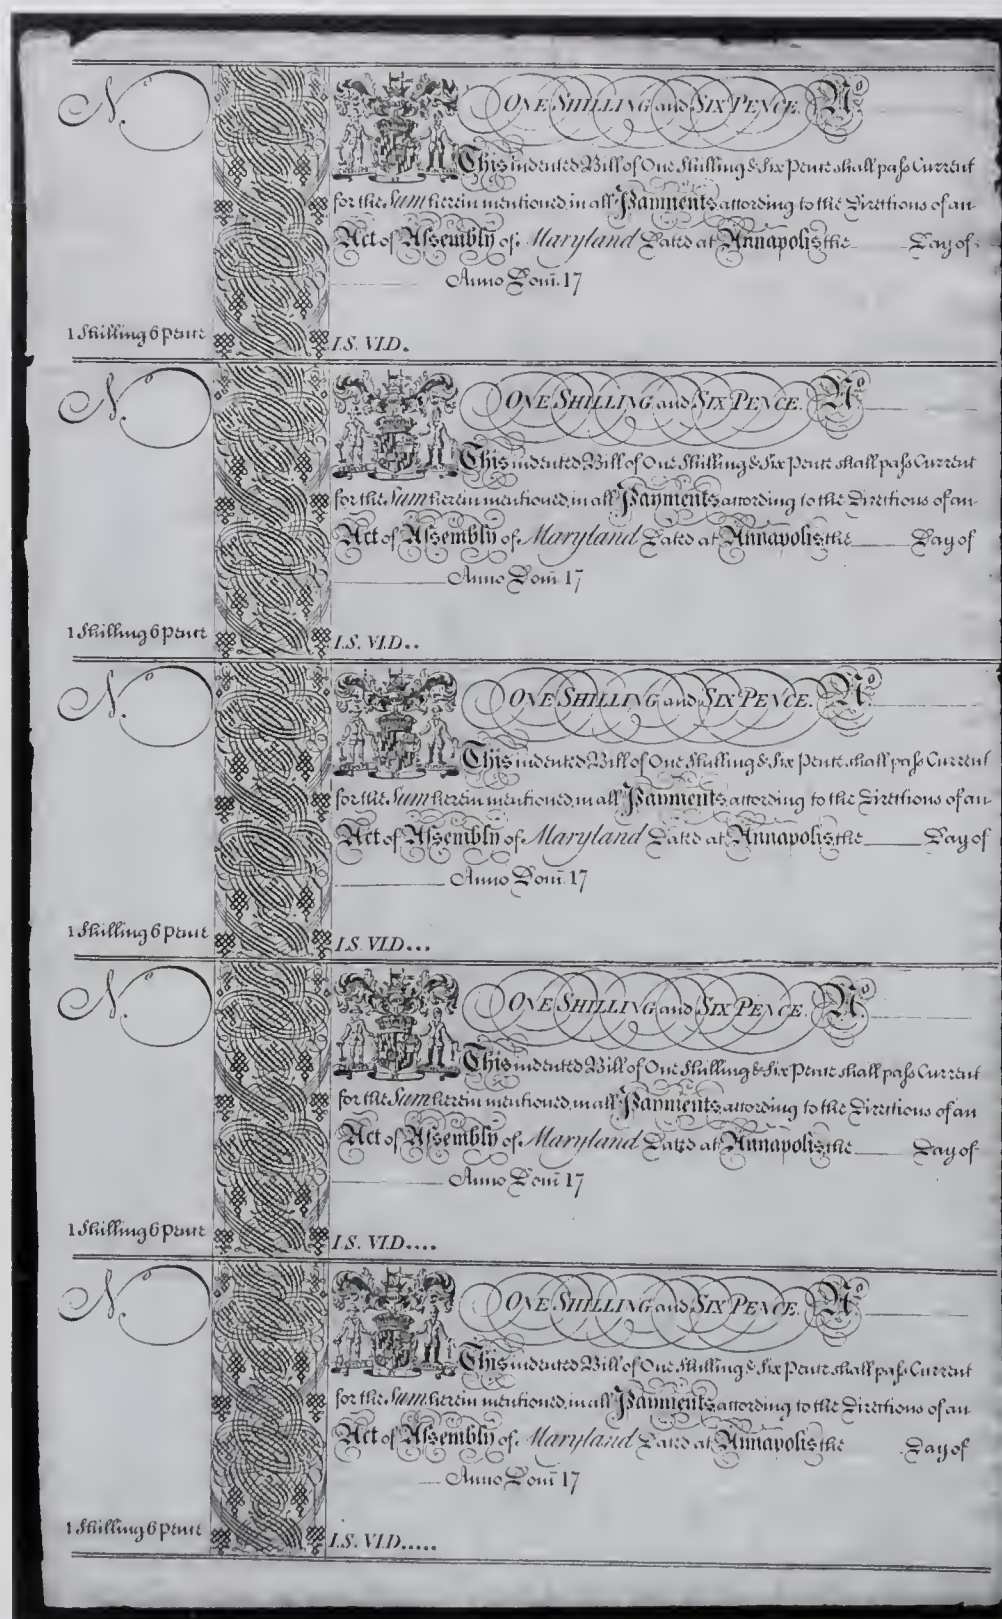 No. ONE SHILLING and SIX PENCE. No.
This indented Bill of One Shilling & Six Pence shall paſs Current
for the Sum herein mentioned, in all Payments, according to the Directions of an
Act of Aſsembly of Maryland Dated at Annapolis, the Day of
Anno Dom̄. 17
1 Shilling 6 Pence I.S. VI.D.
No. ONE SHILLING and SIX PENCE. No.
This indented Bill of One Shilling & Six Pence shall paſs Current
for the Sum herein mentioned, in all Payments, according to the Directions of an
Act of Aſsembly of Maryland Dated at Annapolis, the Day of
Anno Dom̄. 17
1 Shilling 6 Pence I.S. VI.D..
No. ONE SHILLING and SIX PENCE. No.
This indented Bill of One Shilling & Six Pence shall paſs Current
for the Sum herein mentioned, in all Payments, according to the Directions of an
Act of Aſsembly of Maryland Dated at Annapolis, the Day of
Anno Dom̄. 17
1 Shilling 6 Pence I.S. VI.D...
No. ONE SHILLING and SIX PENCE. No.
This indented Bill of One Shilling & Six Pence shall paſs Current
for the Sum herein mentioned, in all Payments, according to the Directions of an
Act of Aſsembly of Maryland Dated at Annapolis, the Day of
Anno Dom̄. 17
1 Shilling 6 Pence I.S. VI.D....
No. ONE SHILLING and SIX PENCE. No.
This indented Bill of One Shilling & Six Pence shall paſs Current
for the Sum herein mentioned, in all Payments, according to the Directions of an
Act of Aſsembly of Maryland Dated at Annapolis, the Day of
Anno Dom̄. 17
1 Shilling 6 Pence I.S. VI.D.....